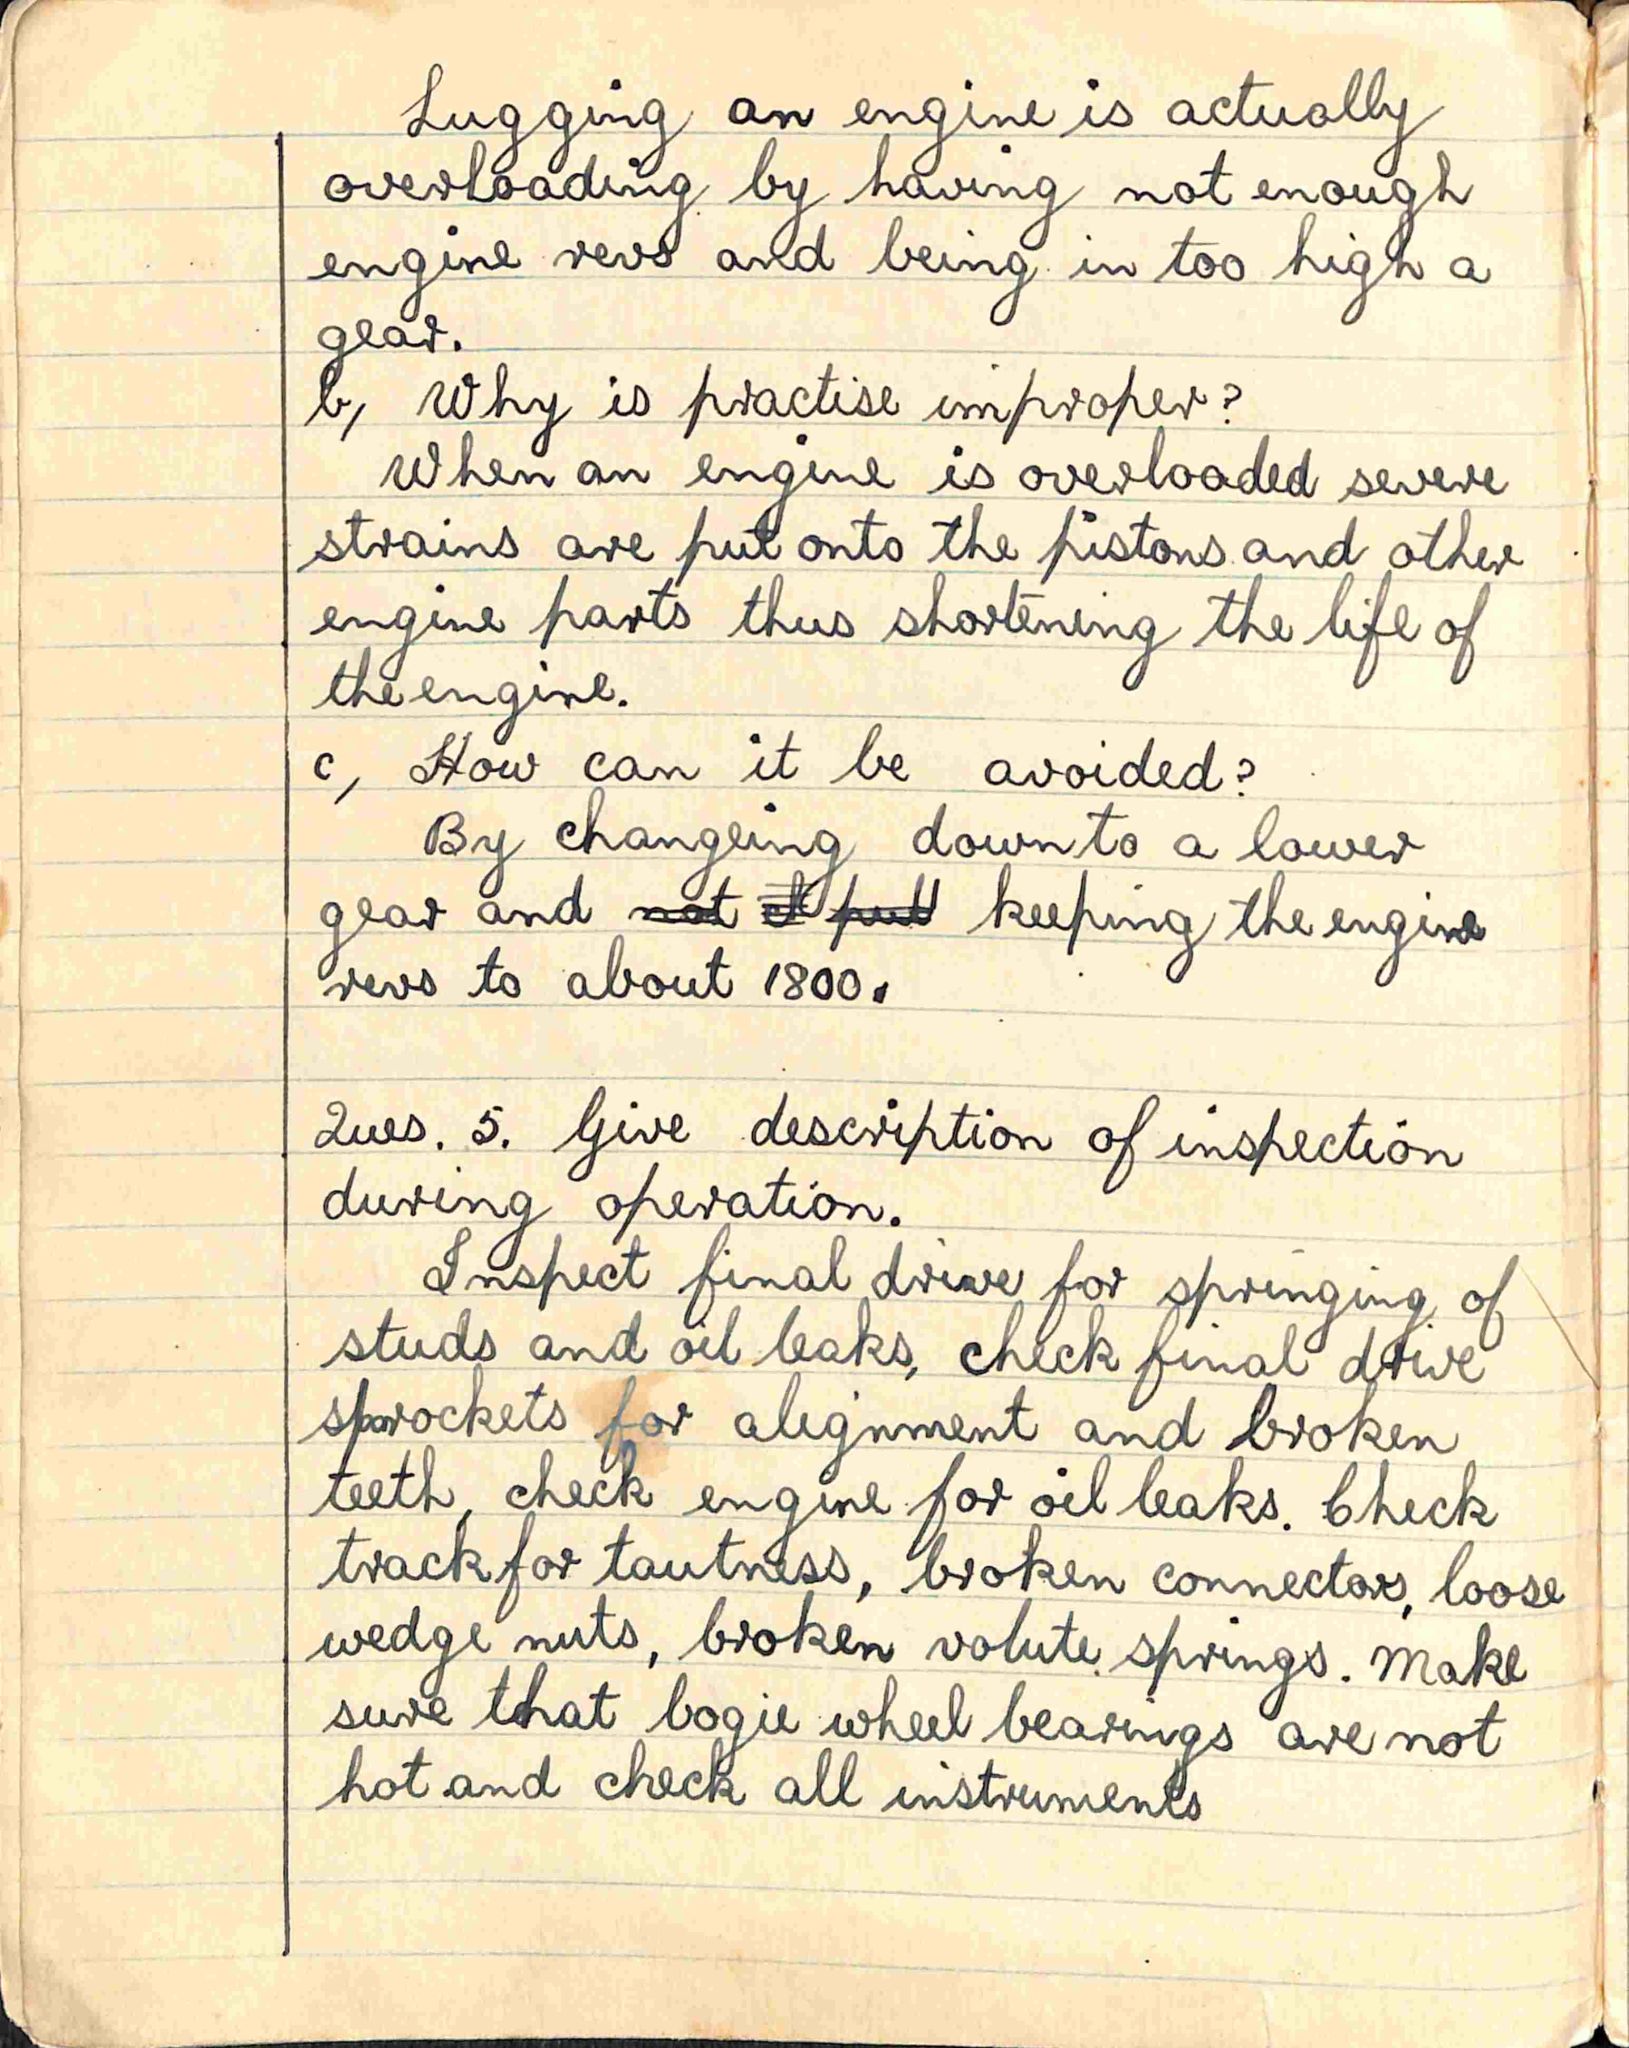 Lugging an engine is actually
overloading by having not enough
engine revs and being in too high a
gear.
b, Why is practise improper?
When an engine is overloaded severe
strains are put onto the pistons and other
engine parts thus shortening the life of
the engine.
c, How can it be avoided?
By changeing down to a lower
gear and not it pull keeping the engine
revs to about 1800.
Ques. 5. Give description of inspection
during operation.
Inspect final drive for springing of
studs and oil leaks, check final drive
sprockets for alignment and broken
teeth, check engine for oil leaks. Check
track for tautness, broken connectors, loose
wedge nuts, broken volute springs. Make
sure that bogie wheel bearings are not
hot and check all instruments